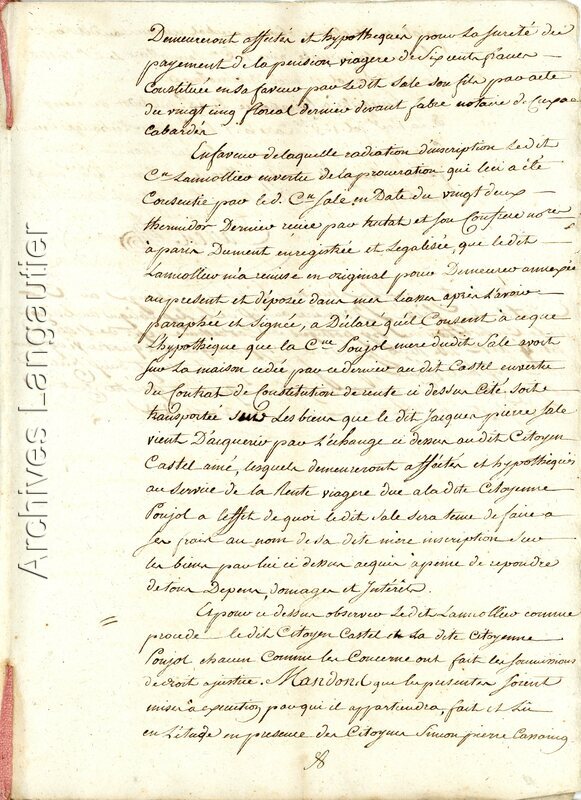 Demeureront affectés et hypothequés pour La sureté du
payement de la pension viagere de Six cents francs
Constituée en sa faveur par Ledit Sale son fils par acte
du vingt cinq floreal dernier devant fabre notaire de Cuxac
Cabardes
En faveur de laquelle radiation d'inscription Ledit
Cn Lamollier en vertu de la procuration qui lui a été
Consentie par le d. Cn Sale en Date du vingt deux
thermidor Dernier reçue par et son Confrere nores
à paris Dument enregistrée et Legalisée, que ledit
Lamollier m'a remise en original pour Demeurer annexée
au present et déposée dans mes Liasses après L'avoir
paraphée et Signée, a Déclaré qu'il Consent à ce que
L'hypothéque que la Cne Poujol mere dudit Sale avoit
sur La maison cedée par ce dernier audit Castel en vertu
du Contrat de Constitution de rente ci dessus Cité, soit
transportée sur Les biens que le dit Jacques pierre Sale
vient D'acquerir par L'échange ci dessus audit Citoyen
Castel ainé, lesquels demeureront affectés et hypothequés
au service de la Rente viagere due a ladite Citoyenne
Poujol a l'effet de quoi ledit Sale sera tenu de faire a
ses frais au nom de sa dite mere inscription sur
les biens par lui ci dessus acquis à peine de repondre
de tous Depens, domages et Intérêts.
Et pour ci dessus observer Ledit Lamollier comme
procede le dit Citoyen Castel et La dite Citoyenne
Poujol chacun Comme les Concerne ont fait les soumissions
de droit a justice. Mandons que les presentes soient
mises à execution par qui il appartiendra, fait et Lu
en L'étude en presence des Citoyens Simon pierre
Archives Langautier